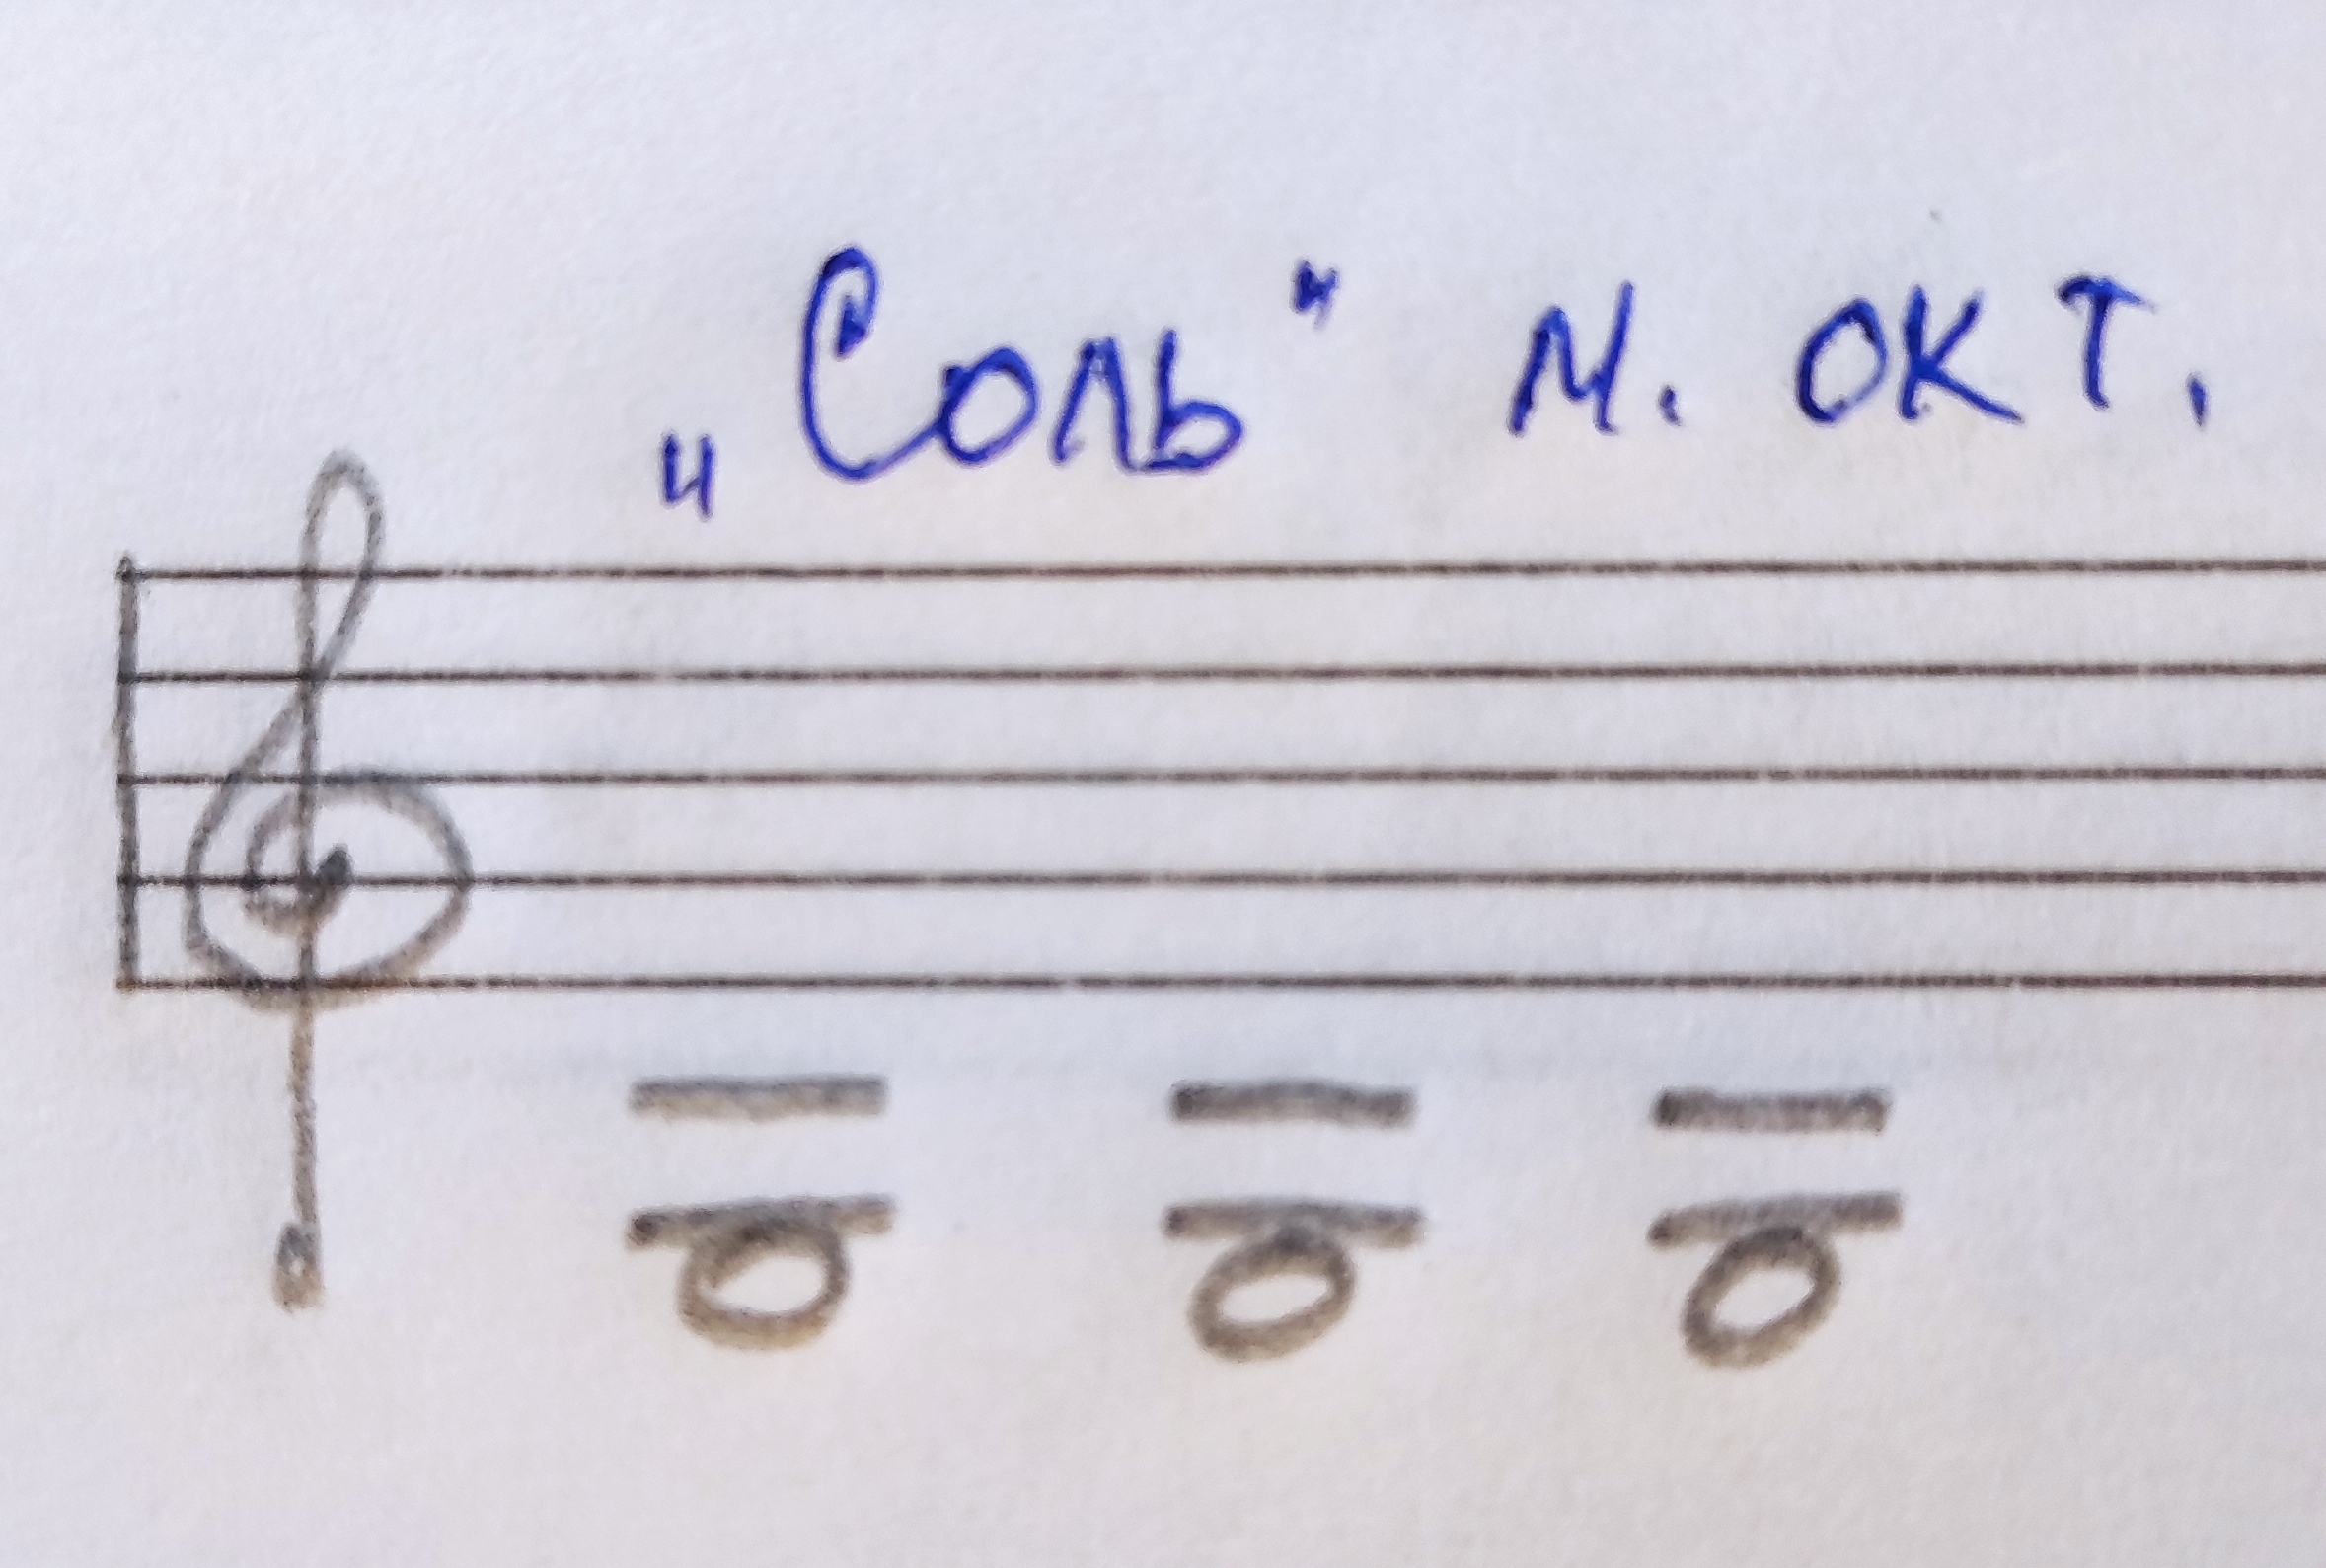 „Соль" м. окт.